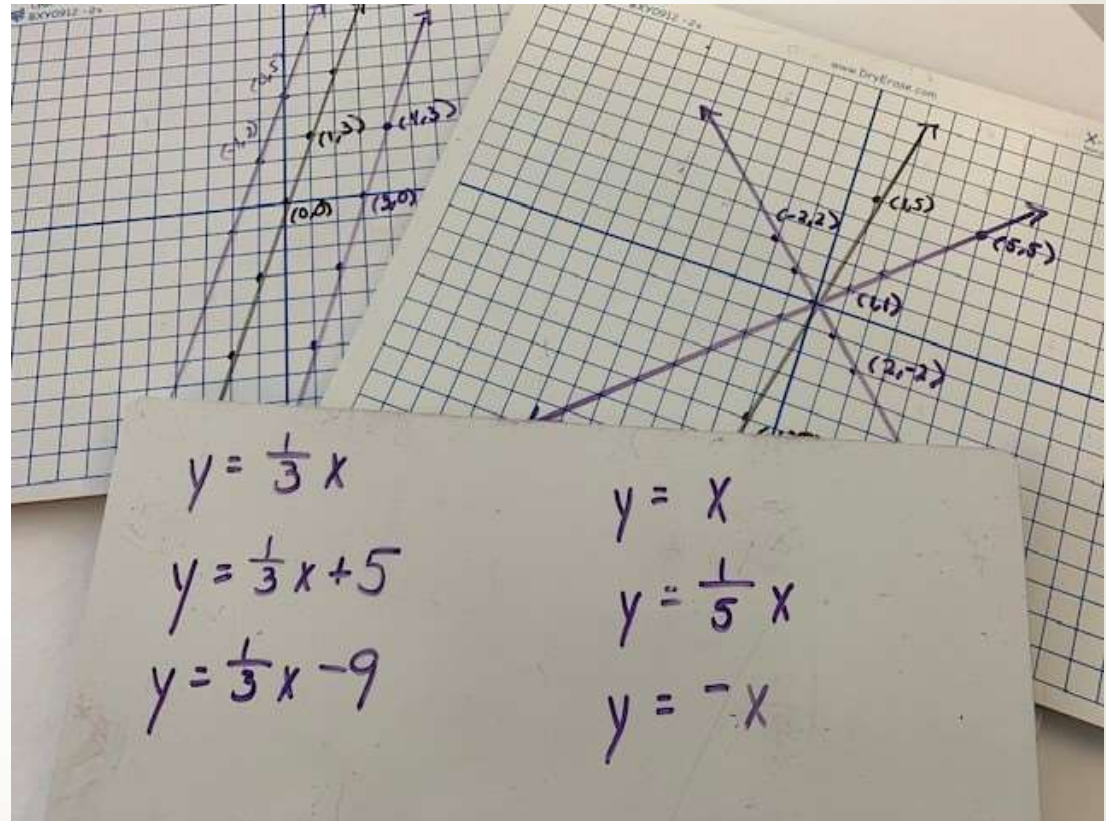 BXY0912 -2s
(0,5
(1,3)
(4,3)
(0,0)
(3,0)
www.DryErase.com
X-
(-2,2)
(1,5)
(5,5)
(1,1)
(2,-2)
y = 1/3 x
y = 1/3 x + 5
y = 1/3 x - 9
y = x
y = 1/5 x
y = -x